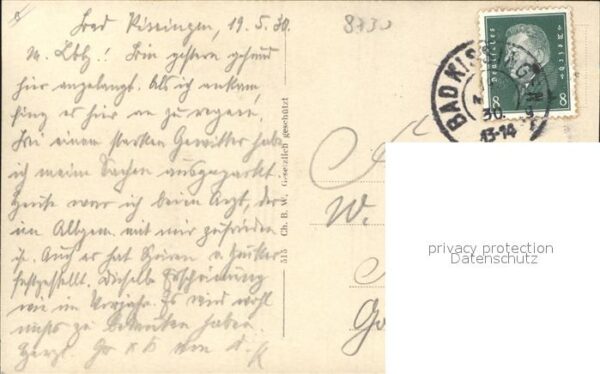 Bad Kissingen, 19.5.30.
M. Lbb.! Bin gestern gesund
hier angelangt. Als ich ankam,
fing es hier an zu regnen.
Bei einem starken Gewitter habe
ich meine Sachen ausgepackt.
Heute war ich beim Arzt, der
im Allgem. mit mir zufrieden
ist. Auch er hat Spuren v. Zucker
festgestellt. Dieselbe Erscheinung
wie im Vorjahr. Es wird wohl
nichts zu bedeuten haben.
Herzl. Gr
515 Ch. B. W. Gesetzlich geschützt
8730
Deutsches Reich
8 8
BAD KISSINGEN
30
13-14
W.
privacy protection
Datenschutz